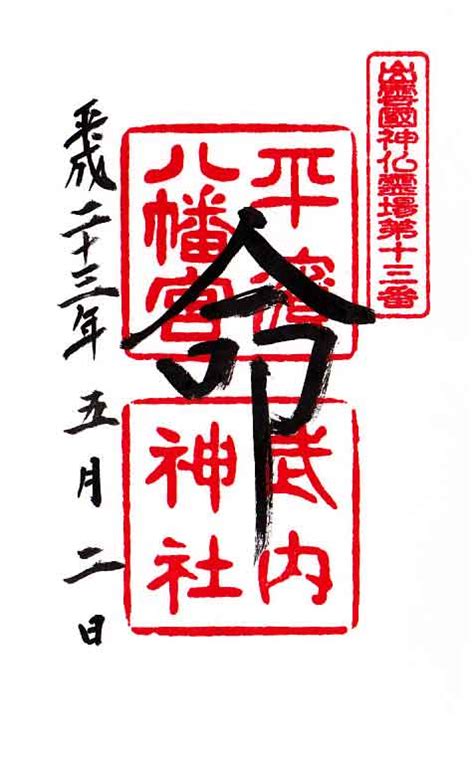 出雲國神仏霊場第十三番
平濱
八幡宮
武内
神社
命
平成二十三年 五月 二日